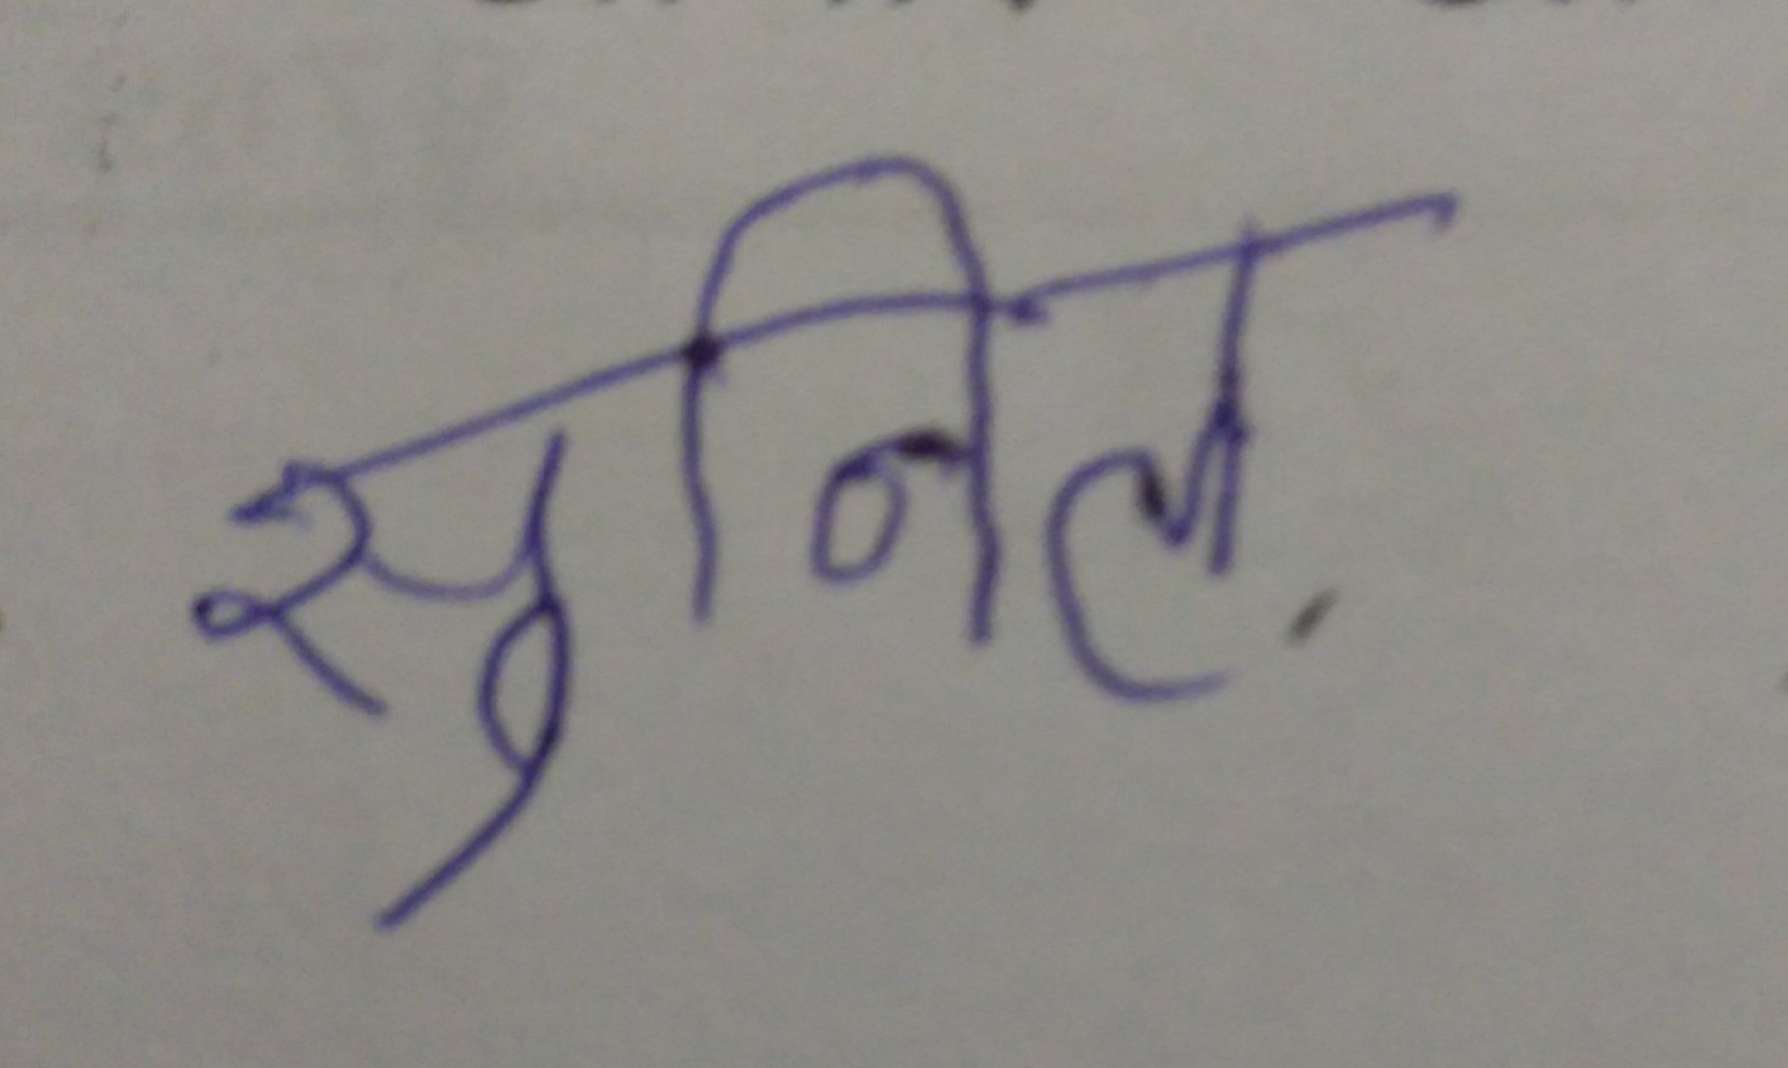 सुनिल